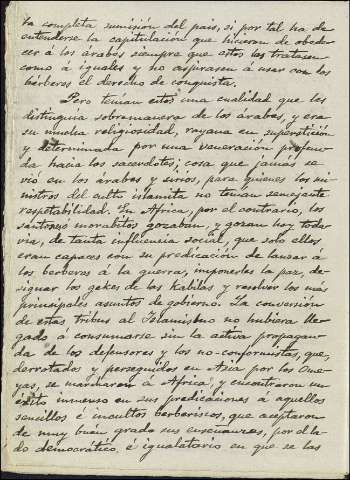 la completa sumisión del pais, si por tal ha de
entenderse la capitulación que hicieran de obede-
cer á los árabes siempre que estos les tratasen
como á iguales y no aspirasen á usar con los
bérberes el derecho de conquista.
Pero tenian estos una cualidad que les
distinguia sobremanera de los árabes, y era
su mucha religiosidad, rayana en superstición
y determinada por una veneración profun-
da hacia los sacerdotes; cosa que jamás se
vió en los árabes y sirios, para quienes los mi-
nistros del culto islamita no tenian semejante
respetabilidad. En Africa, por el contrario, los
santones morabitos gozaban, y gozan hoy toda-
via, de tanta influencia social, que solo ellos
eran capaces con su predicación de lanzar á
los berberes á la guerra, imponerles la paz, de-
signar los gekes de las Kabilas y resolver los más
principales asuntos de gobierno. La conversión
de estas tribus al Islamismo no hubiera lle-
gado á consumarse sin la activa propagan-
da de los defensores y los no-conformistas, que,
derrotados y perseguidos en Asia por los Ome-
yas, se marcharon á Africa, y encontraron un
éxito inmenso en sus predicaciones á aquellos
sencillos é incultos berberiscos, que aceptaron
de muy buen grado sus enseñanzas, por el la-
do democrático é igualatorio en que se las